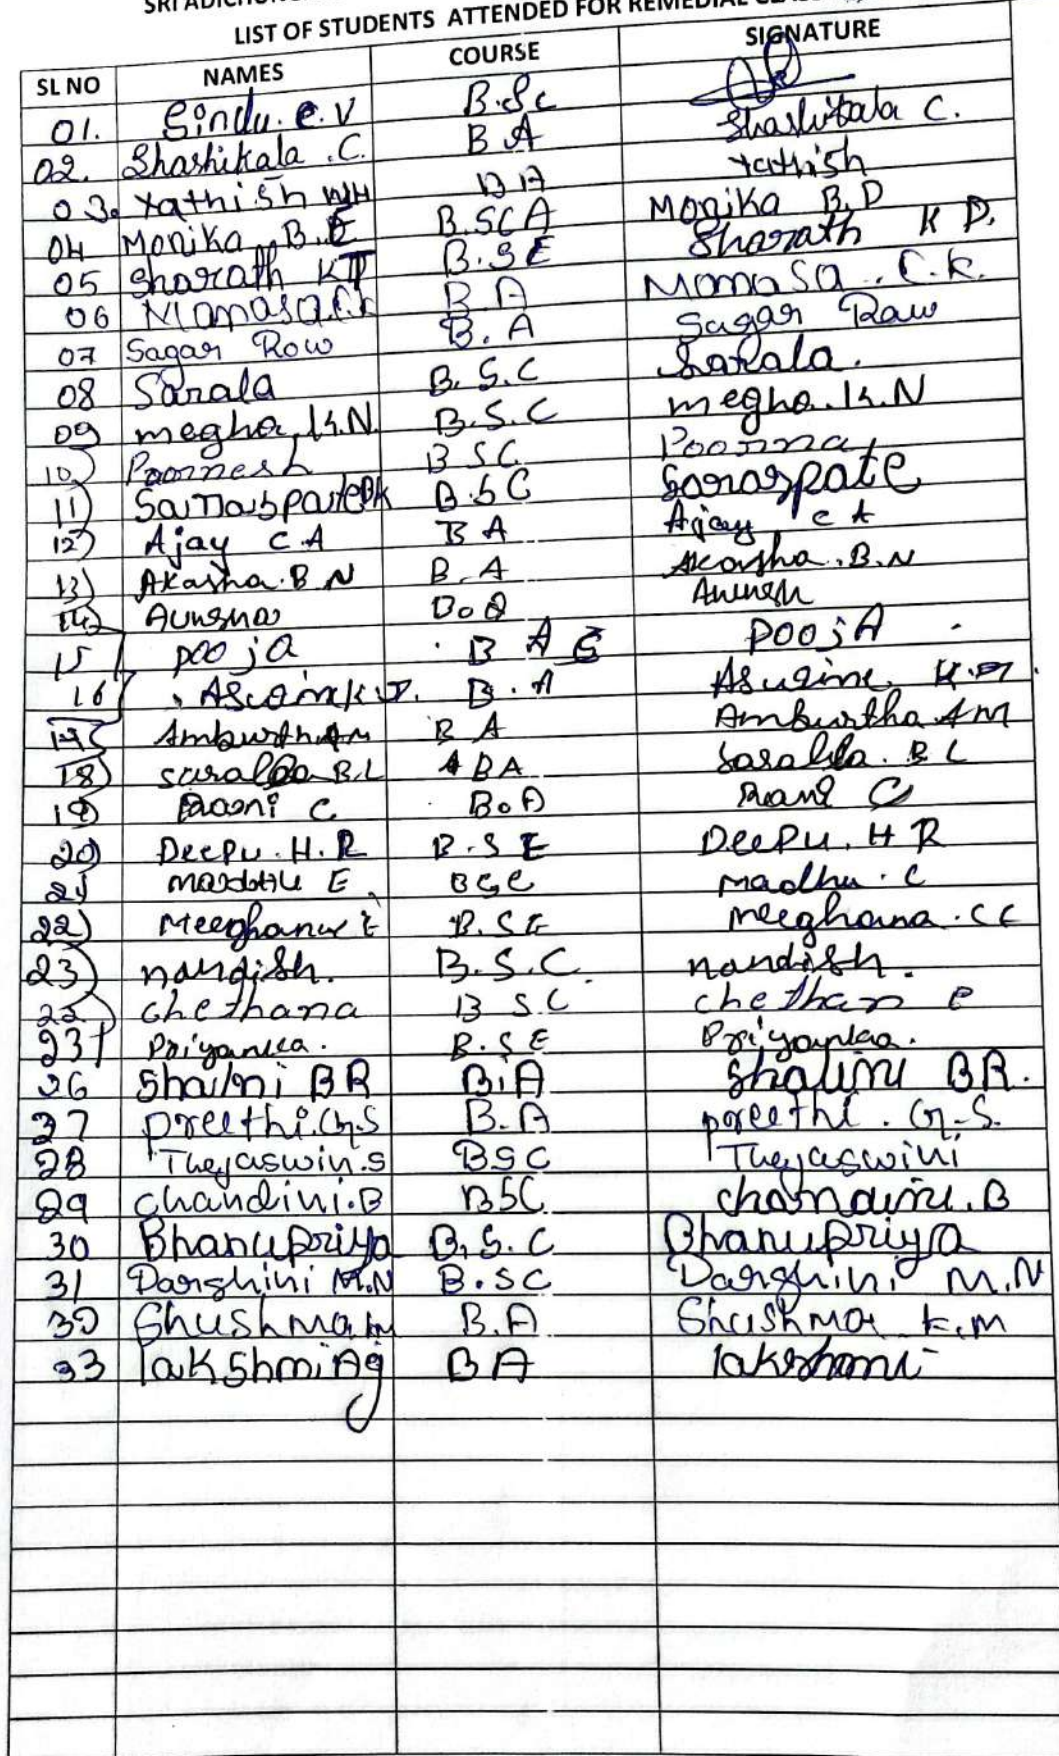 LIST OF STUDENTS ATTENDED FOR REMEDIAL
SL NO NAMES COURSE SIGNATURE
01. Sindu. C. V B.Sc
02. Shashikala .C. B A Shashikala C.
03. Yathish BA Yathish
04 Monika B.E B.SCA Monika B.D
05 Sharath B.SE Sharath K D.
06 B A C.K.
07 Sagar Row B. A Sagar Raw
08 Sarala B. S. C Sarala.
09 megha K.N. B.S.C megha. K.N
10) Poornesh B SC Poorna
11) B.SC
12) Ajay C.A B A Ajay C A
13) Akasha. B N B. A Akasha. B.N
14) B.A
15 pooja B A pooja
16 B. A
B A Ambwtha AM
18) B.L BA B L
19) C B.A Rani C
20) Deepu. H. R B. S E Deepu. H R
21 E BSC Madhu. C
22) B.SE meeghana. CC
23) nandish. B.S.C. nandish.
22) chethana B SC chethan
23) Priyanka. B.SE Priyanka.
26 Shalni BR B.A Shalini BR.
27 preethi. G.S B.A preethi. G.S.
28 Thejaswin.S BSC Thejaswini
29 chandini.B BSC chandini.B
30 Bhanupriya B.S.C Bhanupriya
31 Darshini M.N B.SC Darshini M.N
32 Shushma B.A Shushma k.m
33 lakshmi BA lakshmi